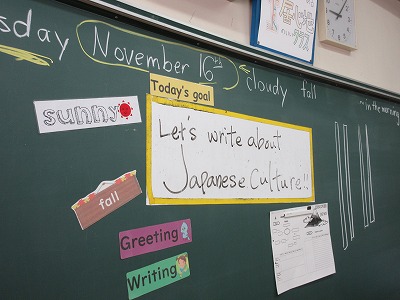 sday November 16th cloudy fall
~in the morning
Today's goal
sunny
Let's write about
Japanese Culture!!
fall
Greeting
Writing